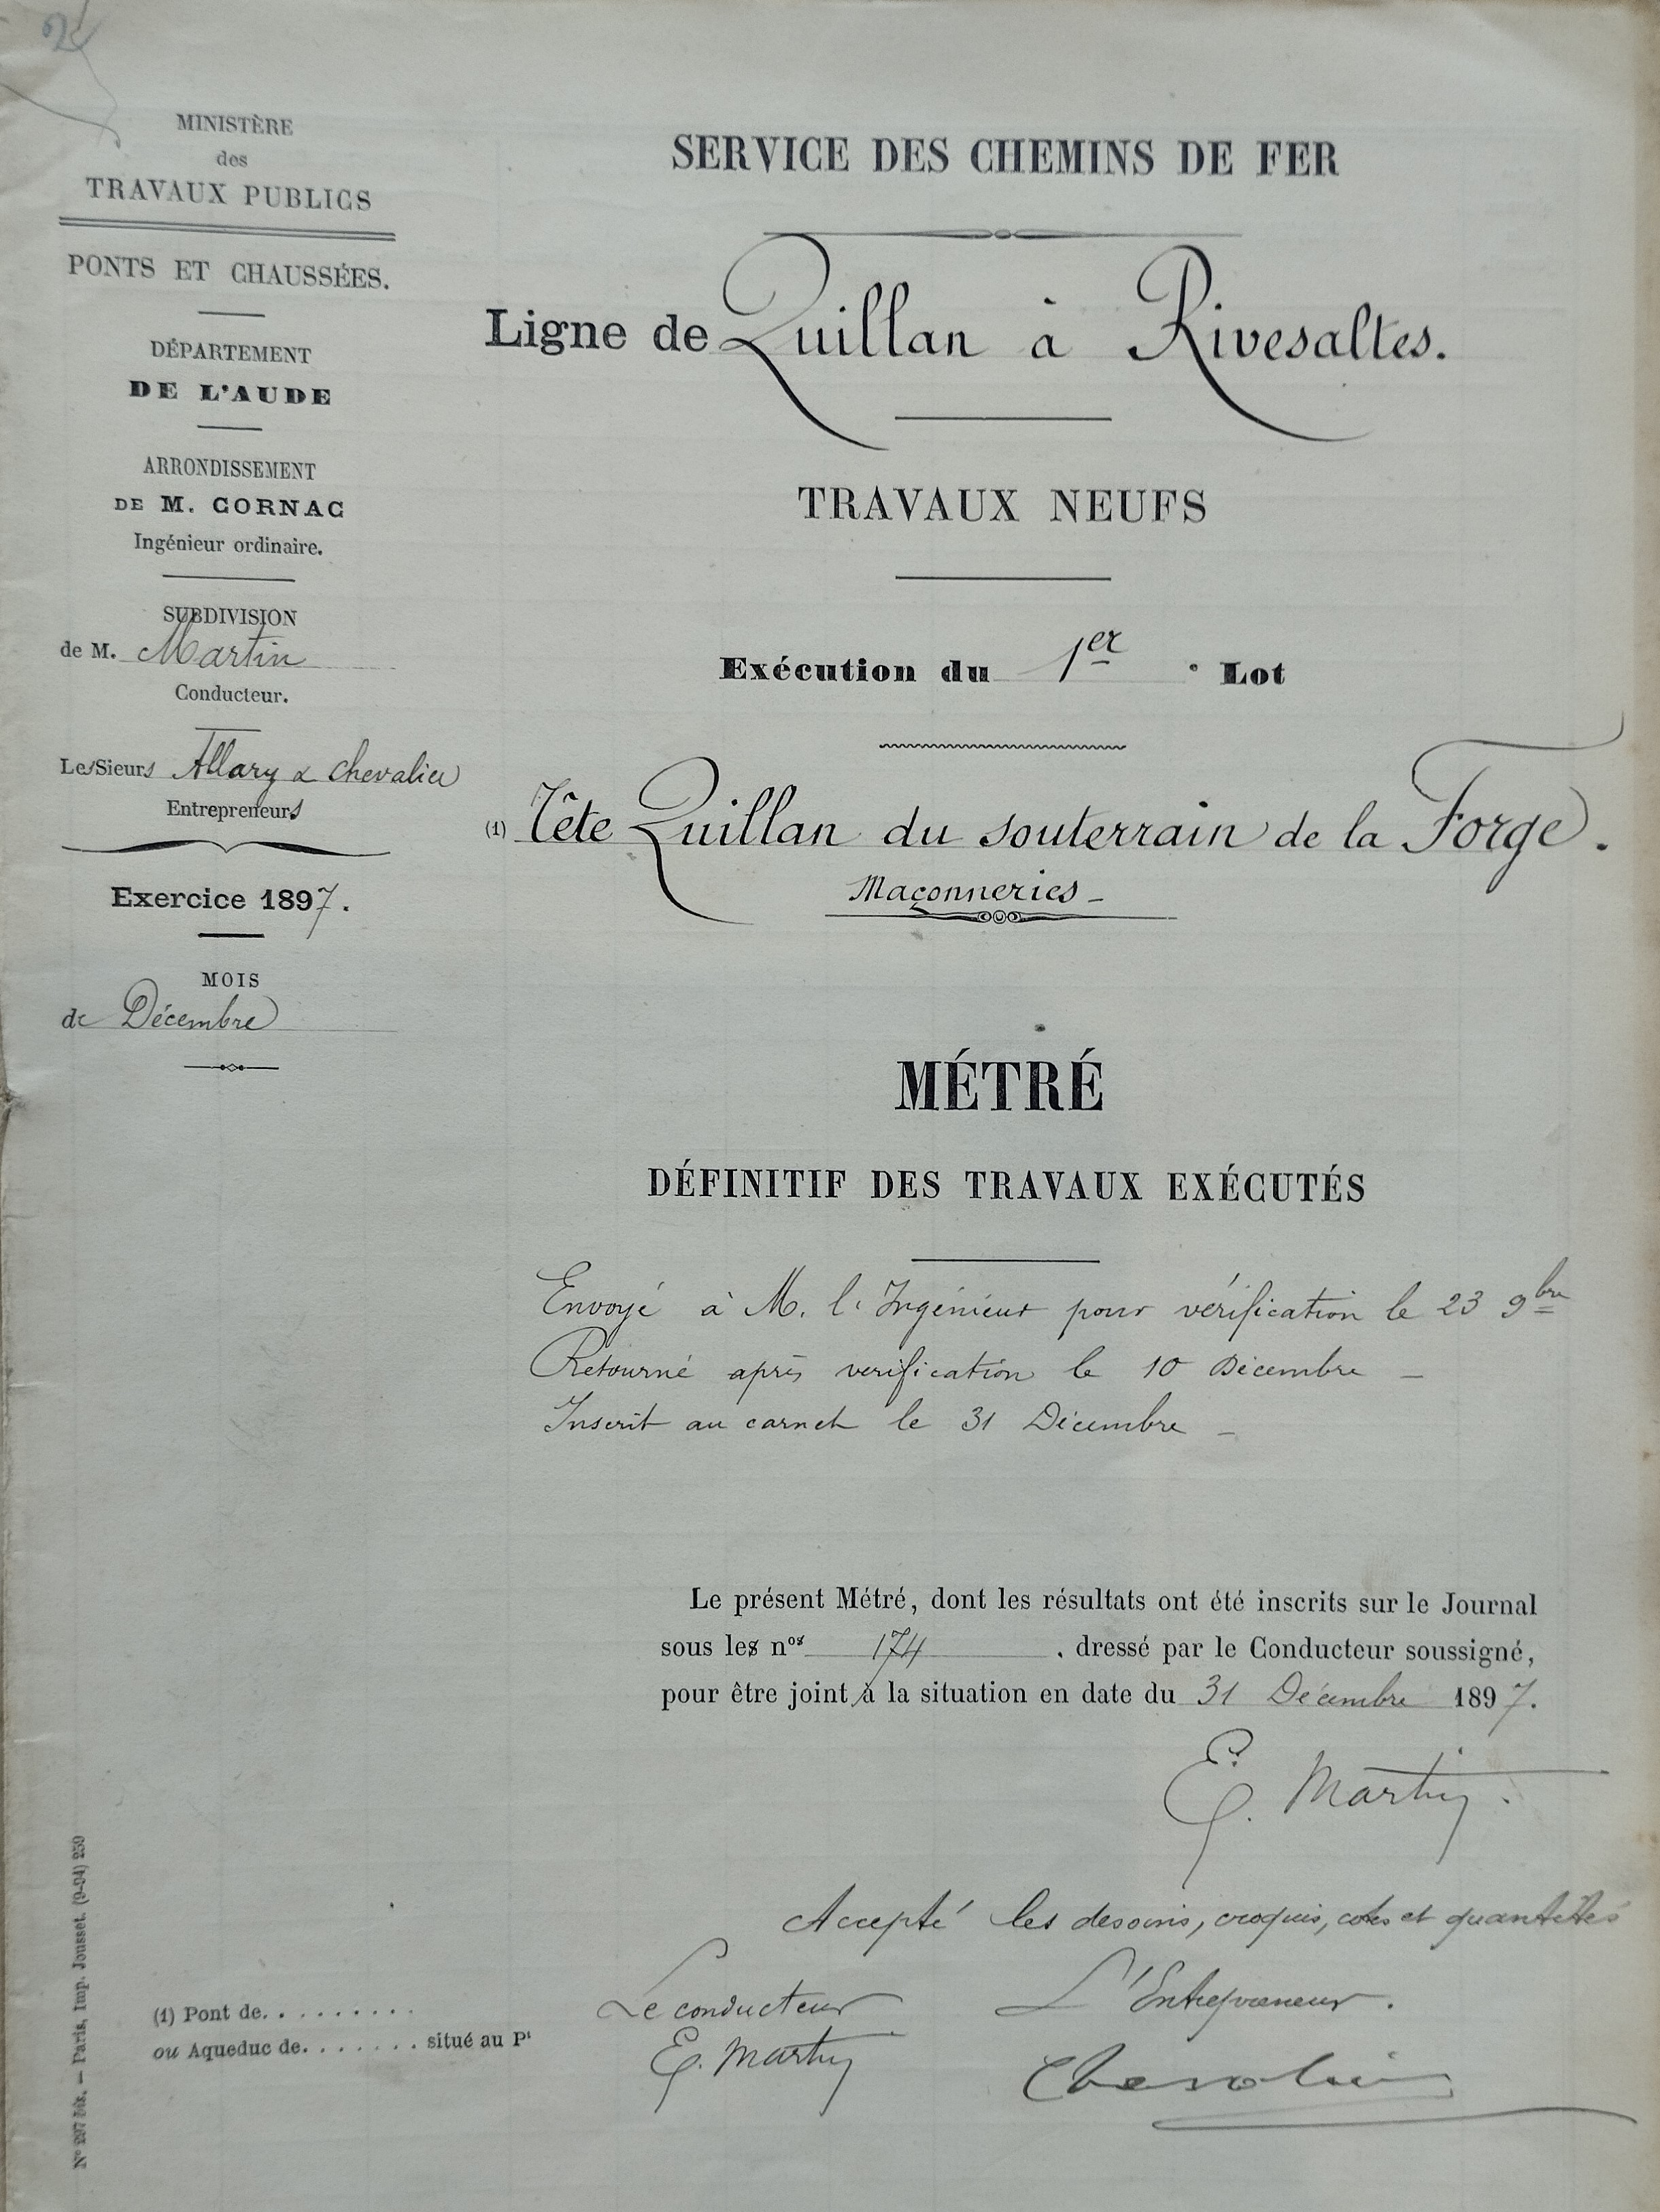 2
MINISTÈRE
des
TRAVAUX PUBLICS
PONTS ET CHAUSSÉES.
DÉPARTEMENT
DE L'AUDE
ARRONDISSEMENT
DE M. CORNAC
Ingénieur ordinaire.
SUBDIVISION
de M. Martin
Conducteur.
Les Sieurs Allary & Chevalier
Entrepreneurs
Exercice 1897.
MOIS
de Décembre
SERVICE DES CHEMINS DE FER
Ligne de Quillan à Rivesaltes.
TRAVAUX NEUFS
Exécution du 1er ° Lot
(1) Tête Quillan du souterrain de la Forge.
Maçonneries -
MÉTRÉ
DÉFINITIF DES TRAVAUX EXÉCUTÉS
Envoyé à M. l'Ingénieur pour vérification le 23 9bre
Retourné après verification le 10 Décembre -
Inscrit au carnet le 31 Décembre -
Le présent Métré, dont les résultats ont été inscrits sur le Journal
sous les nos 174 , dressé par le Conducteur soussigné,
pour être joint à la situation en date du 31 Décembre 1897.
E. Martin.
Accepté les dessins, croquis, cotes et quantités
Le conducteur L'Entrepreneur.
E. Martin Chevalier
(1) Pont de. . . . . . . . .
ou Aqueduc de. . . . . . . situé au Pt
N° 297 bis. — Paris, Imp. Jousset. (9-94) 259